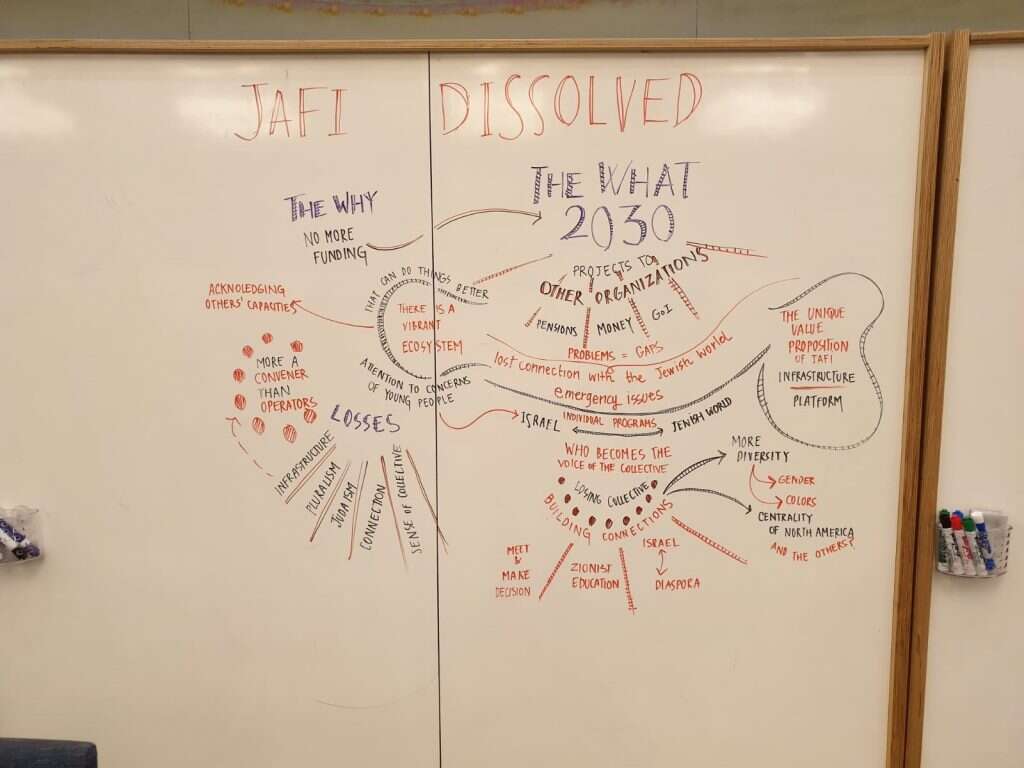 JAFI DISSOLVED
THE WHY
NO MORE
FUNDING
THE WHAT
2030
PROJECTS TO
OTHER ORGANIZATIONS
PENSIONS
MONEY
GOI
THAT CAN DO THINGS BETTER
THERE IS A
VIBRANT
ECOSYSTEM
ATTENTION TO CONCERNS
OF YOUNG PEOPLE
ACKNOLEDGING
OTHERS' CAPACITIES
MORE A
CONVENER
THAN
OPERATORS
LOSSES
INFRASTRUCTURE
PLURALISM
JUDAISM
CONNECTION
SENSE OF COLLECTIVE
PROBLEMS = GAPS
lost connection with the Jewish World
emergency issues
ISRAEL
INDIVIDUAL PROGRAMS
JEWISH WORLD
WHO BECOMES THE
VOICE OF THE COLLECTIVE
LOSING COLLECTIVE
BUILDING CONNECTIONS
MEET
&
MAKE
DECISION
ZIONIST
EDUCATION
ISRAEL
DIASPORA
THE UNIQUE
VALUE
PROPOSITION
OF JAFI
INFRASTRUCTURE
PLATFORM
MORE
DIVERSITY
GENDER
COLORS
CENTRALITY
OF NORTH AMERICA
AND THE OTHERS?